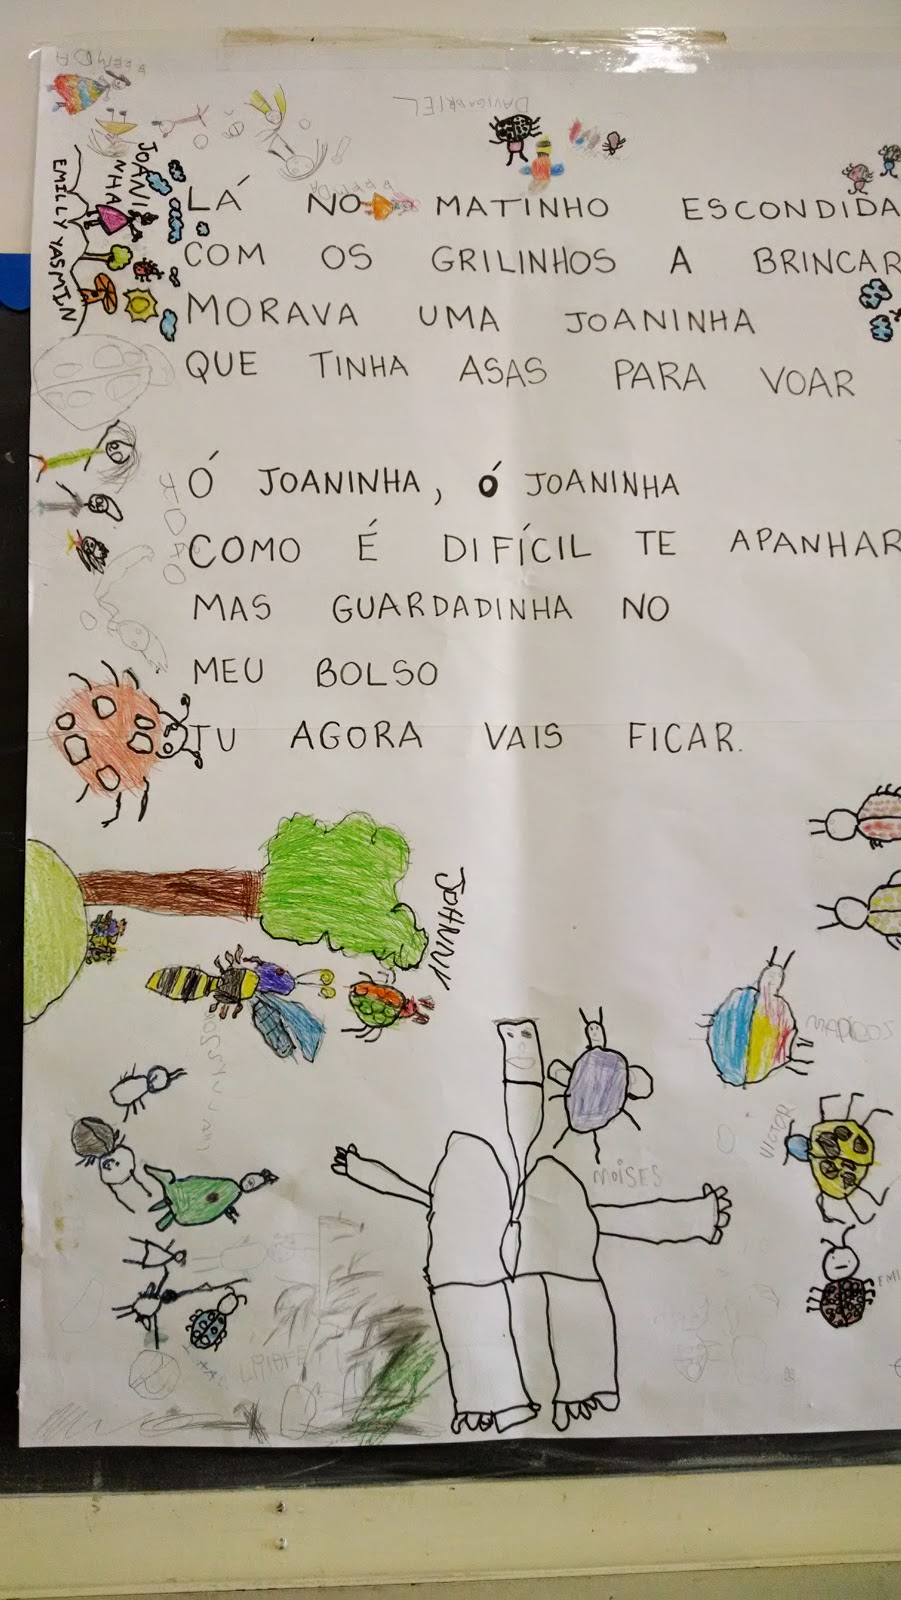 DAVIGABRIEL
JOANI
NHA
EMILLY YASMIN
LÁ NO MATINHO ESCONDIDA
COM OS GRILINHOS A BRINCAR
MORAVA UMA JOANINHA
QUE TINHA ASAS PARA VOAR
Ó JOANINHA, Ó JOANINHA
COMO É DIFÍCIL TE APANHAR
MAS GUARDADINHA NO
MEU BOLSO
TU AGORA VAIS FICAR.
JOÃO
JOHNNY
VICTOR
MOISES